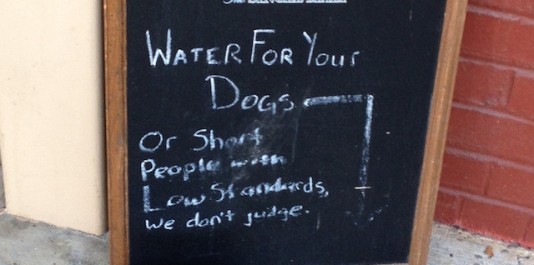 WATER FOR Your
DOGS
Or Short
People with
Low Standards,
We don't judge.